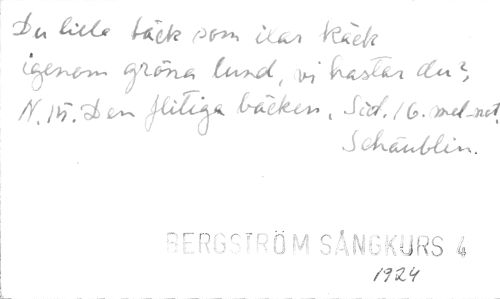 Du lilla bäck som ilar käck
igenom gröna lund, vi hastar du?,
N. 15. Den flitiga bäcken. Sid. 16. mel-not.
Schäublin.
BERGSTRÖM SÅNGKURS 4
1924